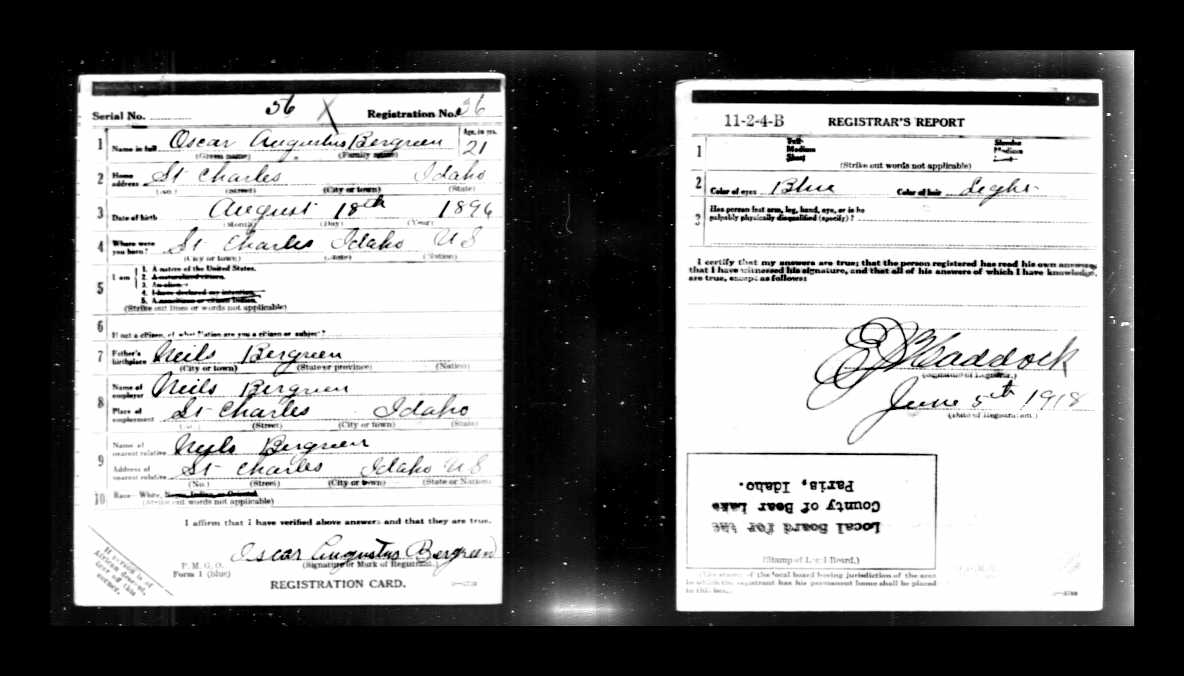 Serial No. 56 X Registration No. 36
1 Name in full Oscar Augustus Bergreen Age, in yrs. 21
(Given name) (Family name)
2 Home address St Charles Idaho
(No.) (Street) (City or town) (State)
3 Date of birth August 18th 1896
(Month) (Day) (Year)
4 Where were you born? St Charles Idaho US
(City or town) (State) (Nation)
5 I am
1. A native of the United States.
2. A naturalized citizen.
3. An alien.
4. I have declared my intention.
5. A noncitizen or citizen Indian.
(Strike out lines or words not applicable)
6 If not a citizen, of what Nation are you a citizen or subject?
7 Father's birthplace Neils Bergreen
(City or town) (State or province) (Nation)
8 Name of employer Neils Bergreen
Place of employment St Charles Idaho
(No.) (Street) (City or town) (State)
9 Name of nearest relative Neils Bergreen
Address of nearest relative St Charles Idaho US
(No.) (Street) (City or town) (State or Nation)
10 Race—White, Negro, Indian, or Oriental
(Strike out words not applicable)
I affirm that I have verified above answers and that they are true.
Oscar Augustus Bergreen
(Signature or Mark of Registrant.)
P. M. G. O.
Form 1 (blue)
REGISTRATION CARD.
If person is of
African descent,
tear off this
corner.
11-2-4-B REGISTRAR'S REPORT
1 Tall Medium Short Slender Medium
(Strike out words not applicable)
2 Color of eyes Blue Color of hair Light
3 Has person lost arm, leg, hand, eye, or is he
palpably physically disqualified (specify)?
I certify that my answers are true; that the person registered has read his own answers;
that I have witnessed his signature, and that all of his answers of which I have knowledge
are true, except as follows:
Haddock
(Signature of Registrar.)
June 5th 1918
(Date of Registration.)
Local Board for the
County of Bear Lake
Paris, Idaho.
(Stamp of Local Board.)
(The stamp of the local board having jurisdiction of the area
in which the registrant has his permanent home shall be placed
in this box.)